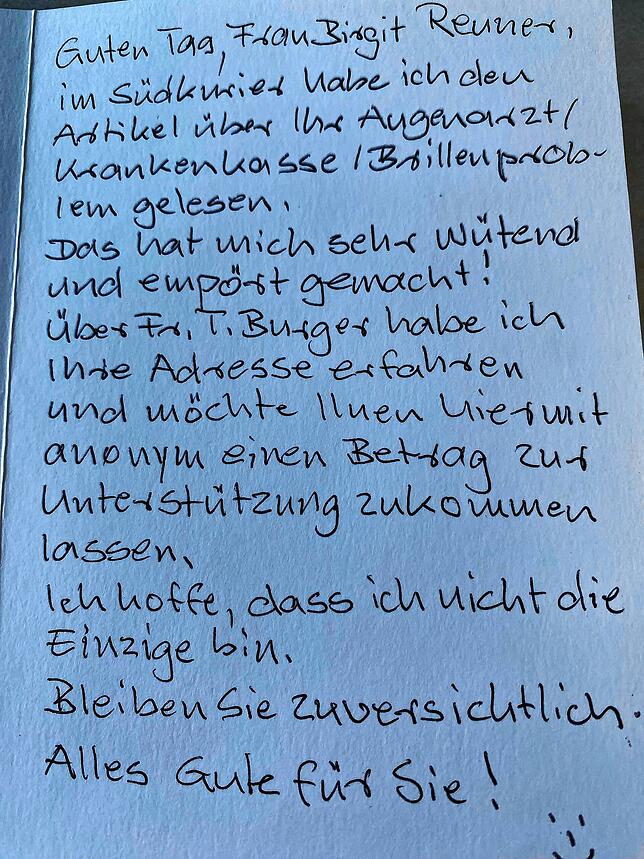 Guten Tag, Frau Birgit Renner,
im Südkurier habe ich den
Artikel über Ihr Augenarzt/
Krankenkasse/Brillenprob-
lem gelesen.
Das hat mich sehr wütend
und empört gemacht!
Über Fr. T. Burger habe ich
Ihre Adresse erfahren
und möchte Ihnen hiermit
anonym einen Betrag zur
Unterstützung zukommen
lassen.
Ich hoffe, dass ich nicht die
Einzige bin.
Bleiben Sie zuversichtlich.
Alles Gute für Sie!